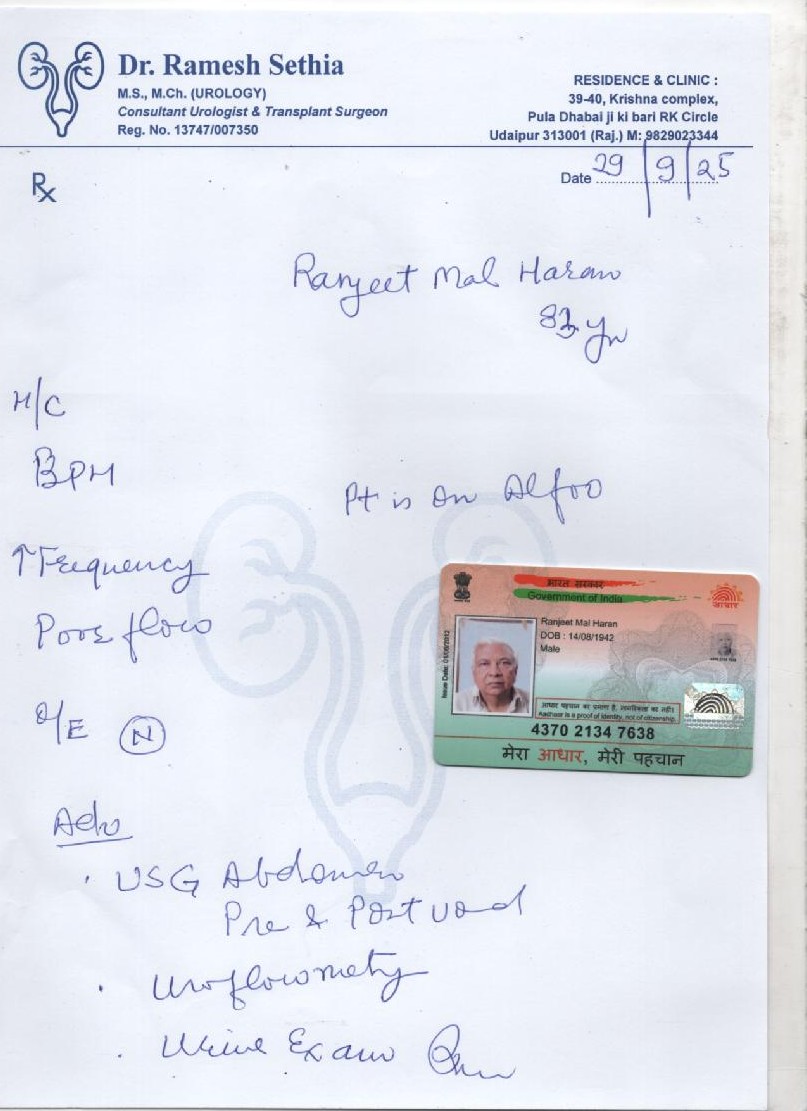 Dr. Ramesh Sethia
M.S., M.Ch. (UROLOGY)
Consultant Urologist & Transplant Surgeon
Reg. No. 13747/007350
RESIDENCE & CLINIC :
39-40, Krishna complex,
Pula Dhabai ji ki bari RK Circle
Udaipur 313001 (Raj.) M: 9829023344
Rx
Date 29/9/25
Ranjeet Mal Haran
83 yr
H/C
BPH
Pt is on Alfoo
↑ Frequency
Poor flow
भारत सरकार
Government of India
आधार
Ranjeet Mal Haran
DOB : 14/08/1942
Male
आधार पहचान का प्रमाण है, नागरिकता का नहीं।
Aadhaar is a proof of identity, not of citizenship.
4370 2134 7638
मेरा आधार, मेरी पहचान
O/E N
Adv
· USG Abdomen
Pre & Post void
· Uroflowmetry
· Urine Exam